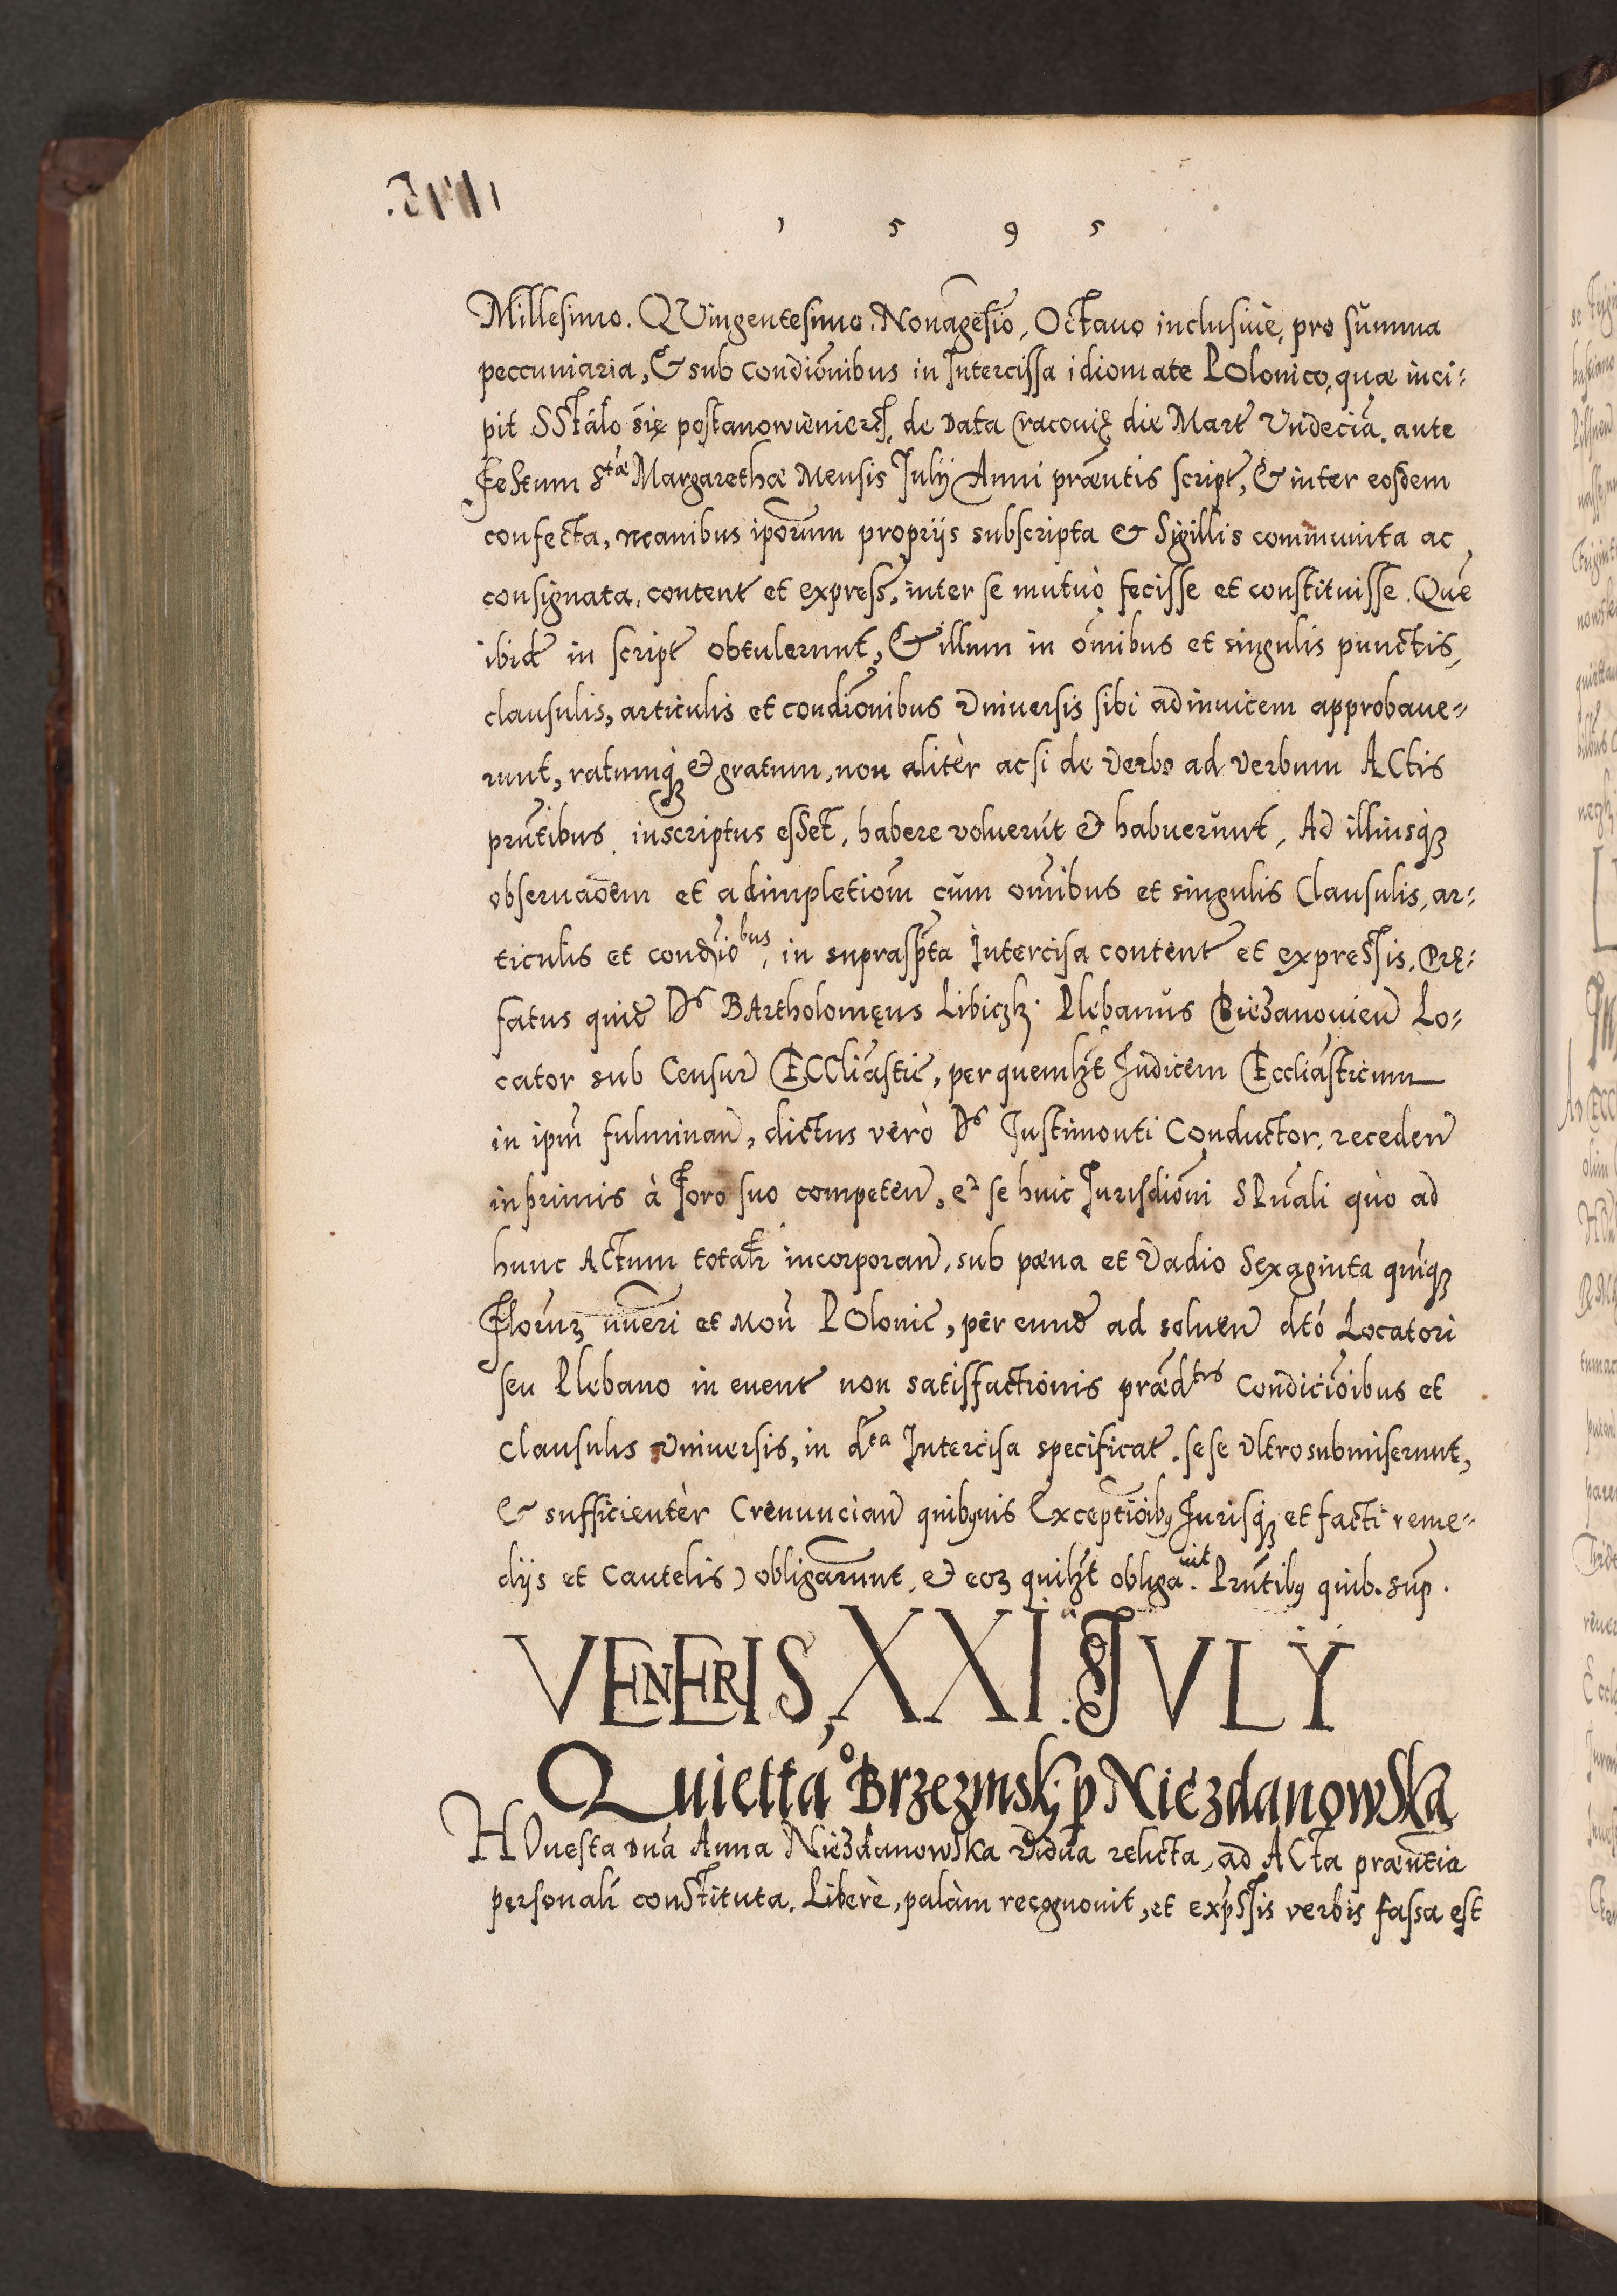 1 5 9 5
Millesimo. QVingentesimo. Nonagesio, Octauo inclusiuè, pro sum̃ma
peccuniaria, & sub condiõnibus in Intercissa idiomate POlonico, quæ inci:
pit SStáło się postanowienie etc. de Data Cracouię die Mart Vndeciã. ante
Festum Stæ Margarethæ Mensis Julij Anni præntis script, & inter eosdem
confecta, manibus iporum proprijs subscripta & Sigillis communita ac
consignata, content et express, inter se mutuò fecisse et constituisse. Quẽ
ibid in script obtulerunt, & illum in oĩnibus et singulis punctis,
clausulis, articulis et condiõnibus Vniuersis sibi adinuicem approbaue=
runt, ratumq̃ & gratum, non alitèr acsi de Verbo ad Verbum ACtis
prñtibus inscriptus esset, habere voluerũt & habuerũnt, Ad illiusq̃
obseruaõem et adimpletiom cum oĩnibus et singulis Clausulis, ar:
ticulis et condiõibus, in suprasp̃ta Intercisa content et expressis, Præ:
fatus quid Ds BArtholomęus Libiczk. Plebanus Bieżanouien Lo:
cator sub Censur ECCliãstic, per quemlȝt Judicem Eccliãsticum
in ipm̃ fulminan, dictus verò Ds Justimonti Conductor, receden
inprimis à Foro suo competen, et se huic Jurisdiõni SPuali quò ad
hunc ACtum totalr incorporan, sub pæna et Vadio Sexaginta quiq̃
Florũȝ nũeri et Moñ POlonic, per eund ad soluen dtõ Locatori
seu Plebano in euent non satisfactionis prædtis Condiciõibus et
Clausulis Vniuersis, in dta Intercisa specificat. sese Vltro submiserunt,
& sufficientèr (renuncian quibusuis Exceptiõibꝫ Jurisq̃ et facti reme=
dijs et Cautelis) obligarunt, & eoȝ quilȝt obligauit. Prñtibꝫ quib. sup̃.
VENERIS, XXI. JVLY
Quietta° Brzezinskj p Niezdanowska
HOnesta Dnã Anna Nieżdanowska Vidua relicta, ad ACta præntia
personalr conStituta, Liberè, palàm recognouit, et expSsis verbis fassa est